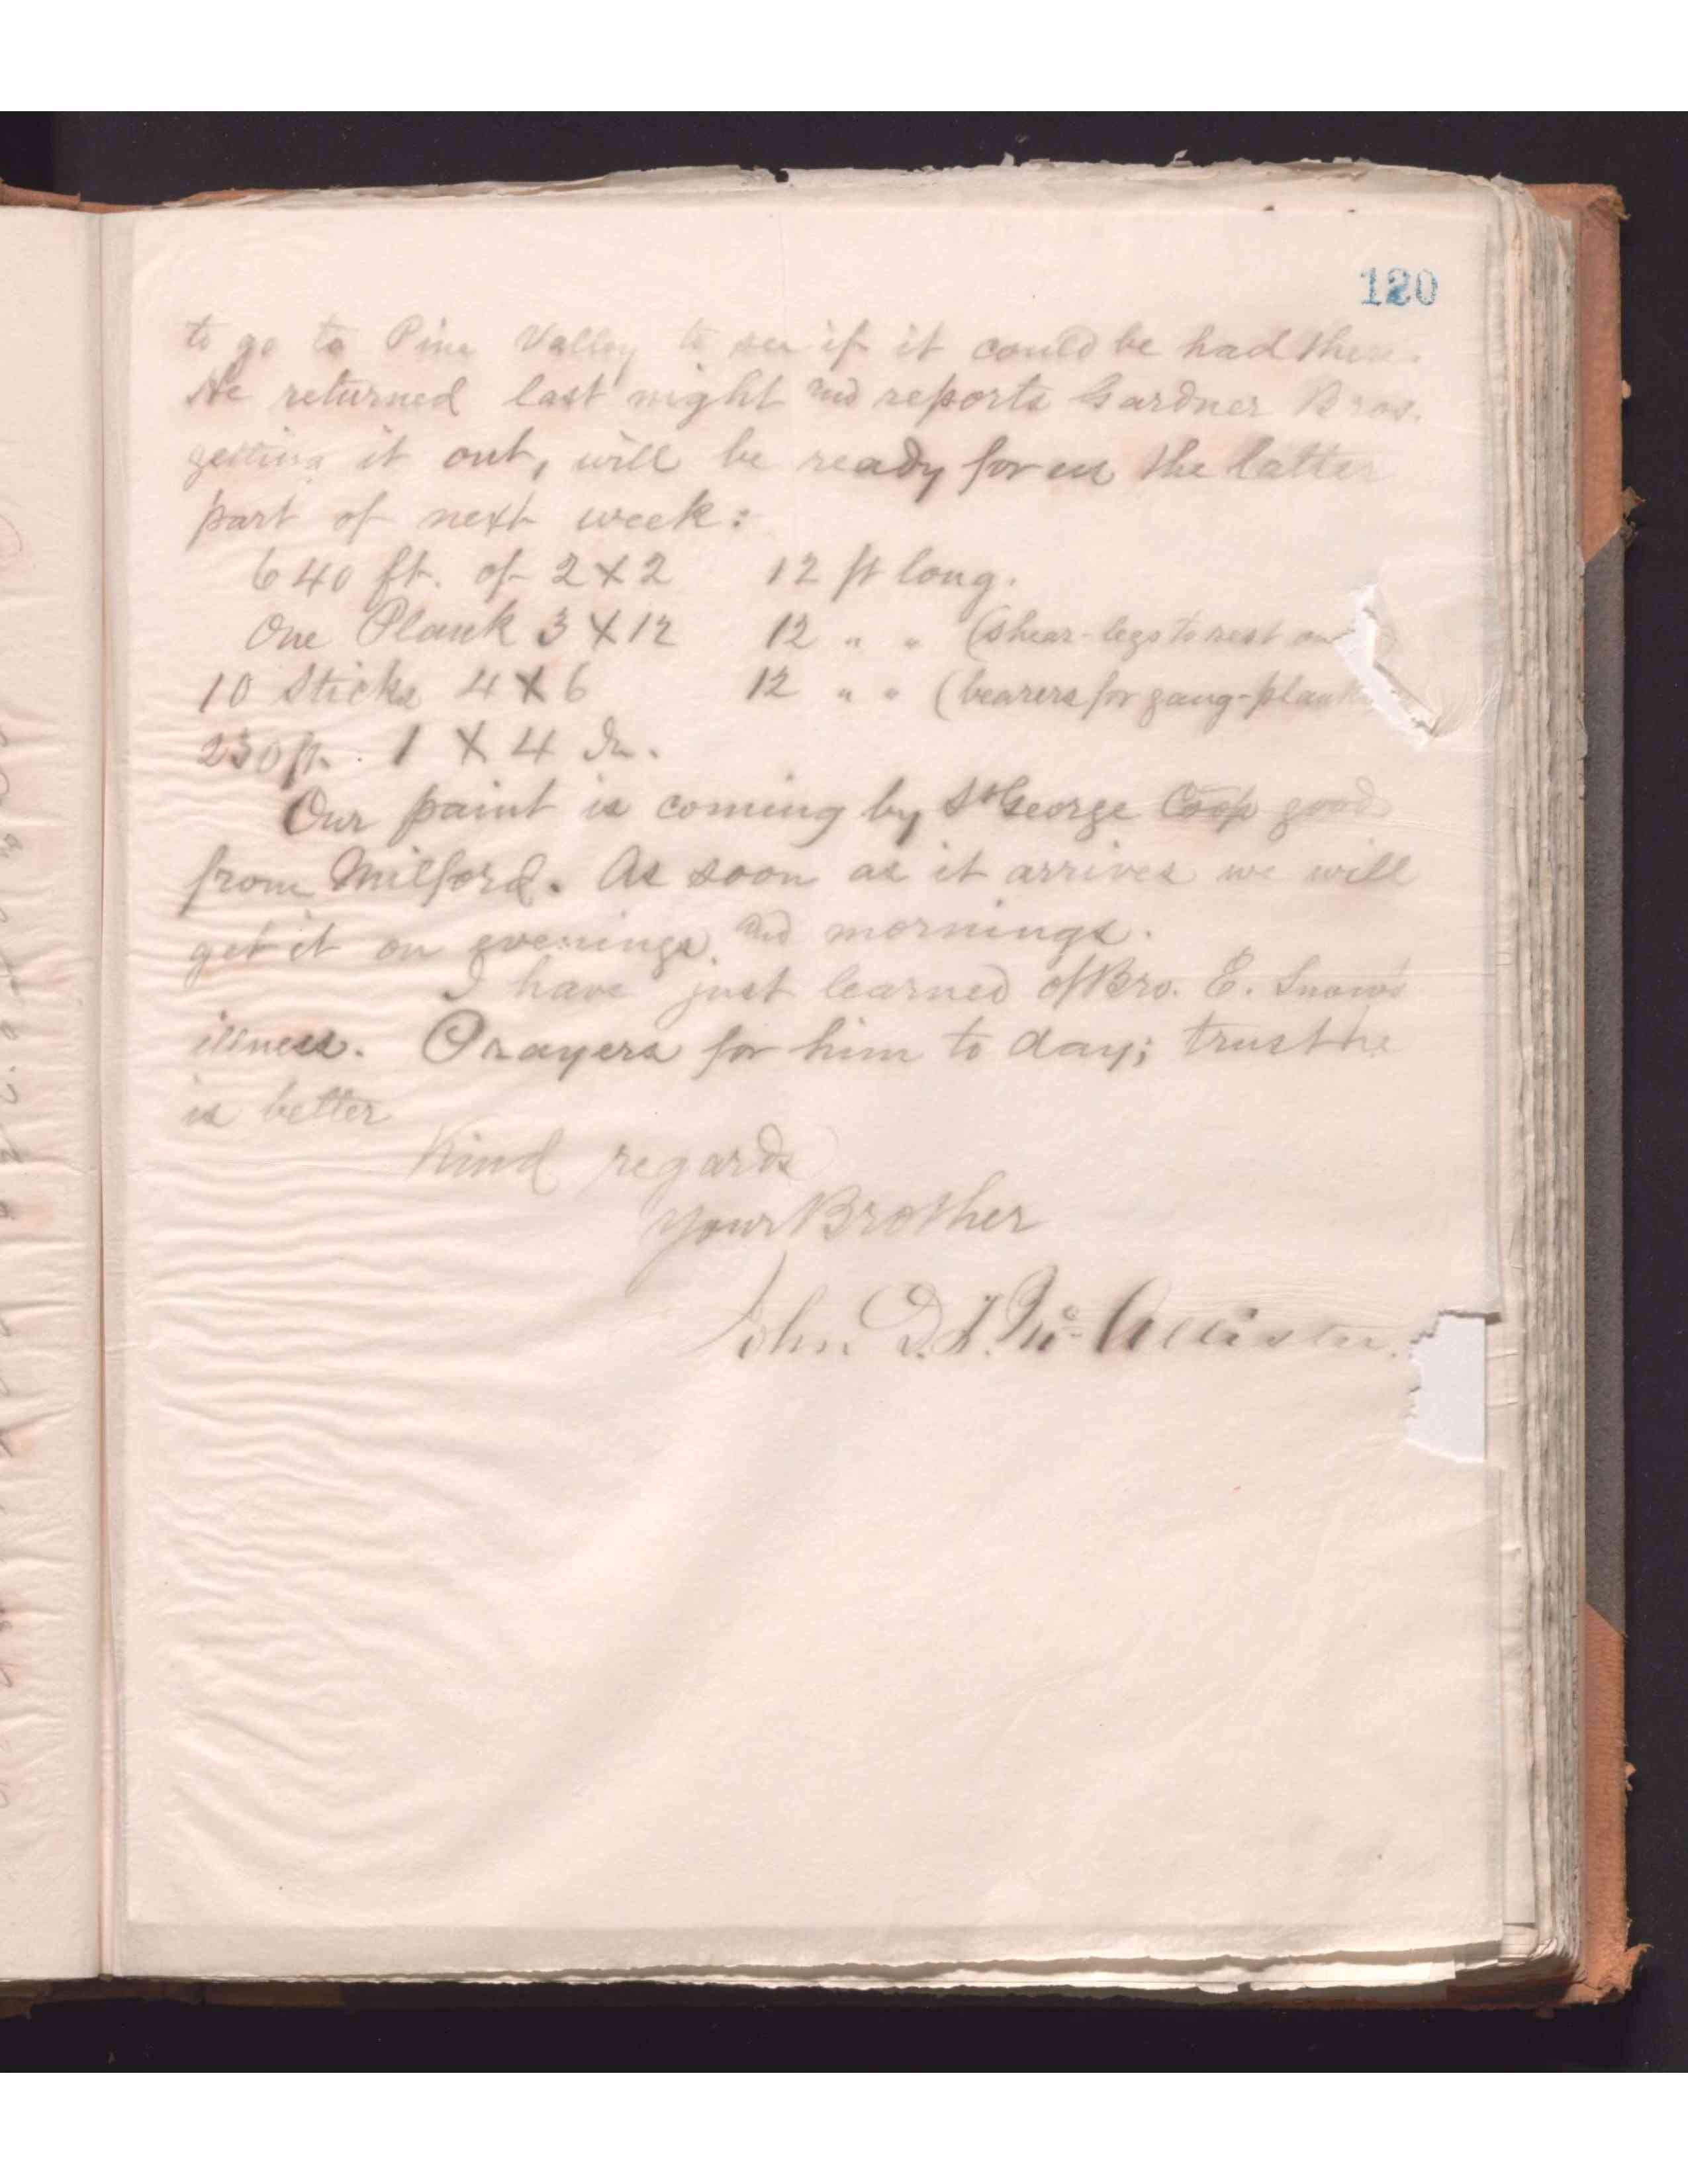 120
to go to Pine Valley to see if it could be had there.
He returned last night and reports Gardner Bros.
getting it out, will be ready for us the latter
part of next week:
640 ft. of 2 X 2 12 ft long.
One Plank 3 X 12 12 " " (shear-legs to rest on
10 Sticks 4 X 6 12 " " (bearers for gang-plank
230 ft. 1 X 4 In.
Our paint is coming by St George Coop good
from Milford. As soon as it arrives we will
get it on evenings and mornings.
I have just learned of Bro. E. Snow's
illness. Prayers for him to day; trust he
is better
Kind regards
Your Brother
John D. T. McAllister.